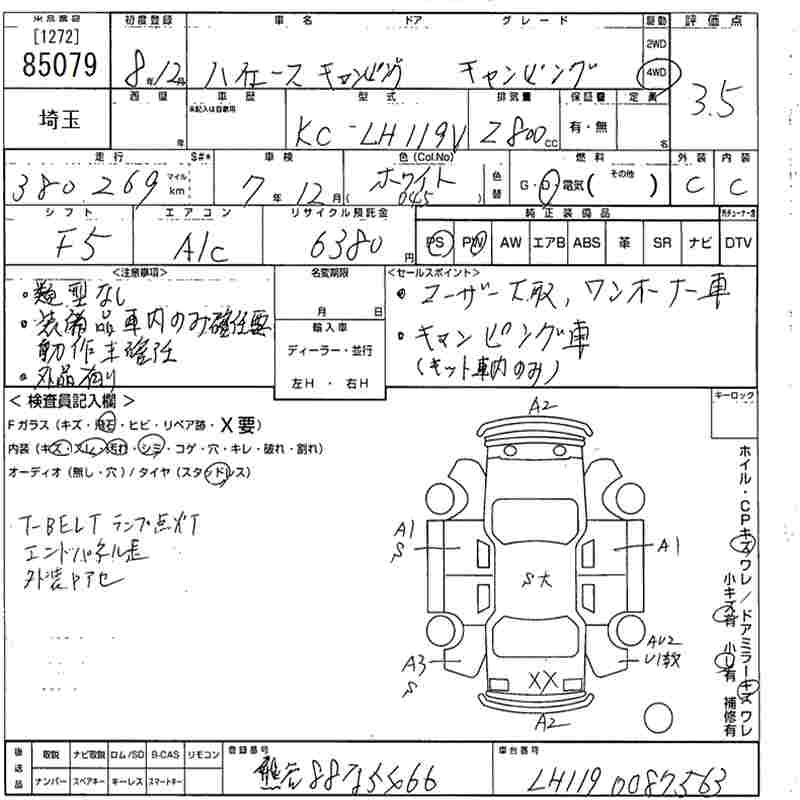 [1272]
85079
埼玉
初度登録 車名 ドア グレード 駆動 評価点
8年12月 ハイエース キャンピング キャンピング 2WD 4WD 3.5
車歴 型式 排気量 保証書 定員
未記入は自家用
年 KC-LH119V 2800cc 有・無 名
走行 S#* 車検 色(Col.No) 燃料 外装 内装
380,269 マイル km 7年12月 ホワイト 045 色替 G・D・電気( その他 ) C C
シフト エアコン リサイクル預託金 純正装備品
F5 A/C 6380円 PS PW AW エアB ABS 革 SR ナビ DTV
<注意事項> 名変期限 <セールスポイント>
月 日
輸入車
ディーラー・並行
左H・右H
・装備品車内のみ確任要
動作未確任
・外品有り
・ユーザー買取,ワンオーナー車
・キャンピング車
(キット車内のみ)
<検査員記入欄> キーロック
Fガラス(キズ・飛石・ヒビ・リペア跡・X要)
内装(キズ・スレ・汚れ・シミ・コゲ・穴・キレ・破れ・割れ)
オーディオ(無し・穴)/タイヤ(スタッドレス)
T-BELTランプ点灯
外装ヤアセ
A2
A1 S
A1
S大
A3 S
AU2
XX
A2
ホイル・CPキズワレ/ドアミラーキズワレ
小キズ有 小U有 補修有
後送品 取説 ナビ取説 ロム/SD B-CAS リモコン
ナンバー スペアキー キーレス スマートキー
登録番号
熊谷88
車台番号
LH119 0087563